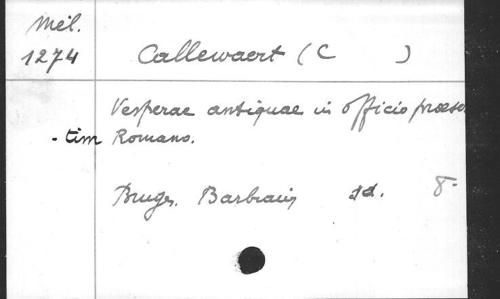 Mél.
1274
Callewaert (C )
Vesperae antiquae in officio praeser
-tim Romano.
Bruges. Barbiaux sd. 8-